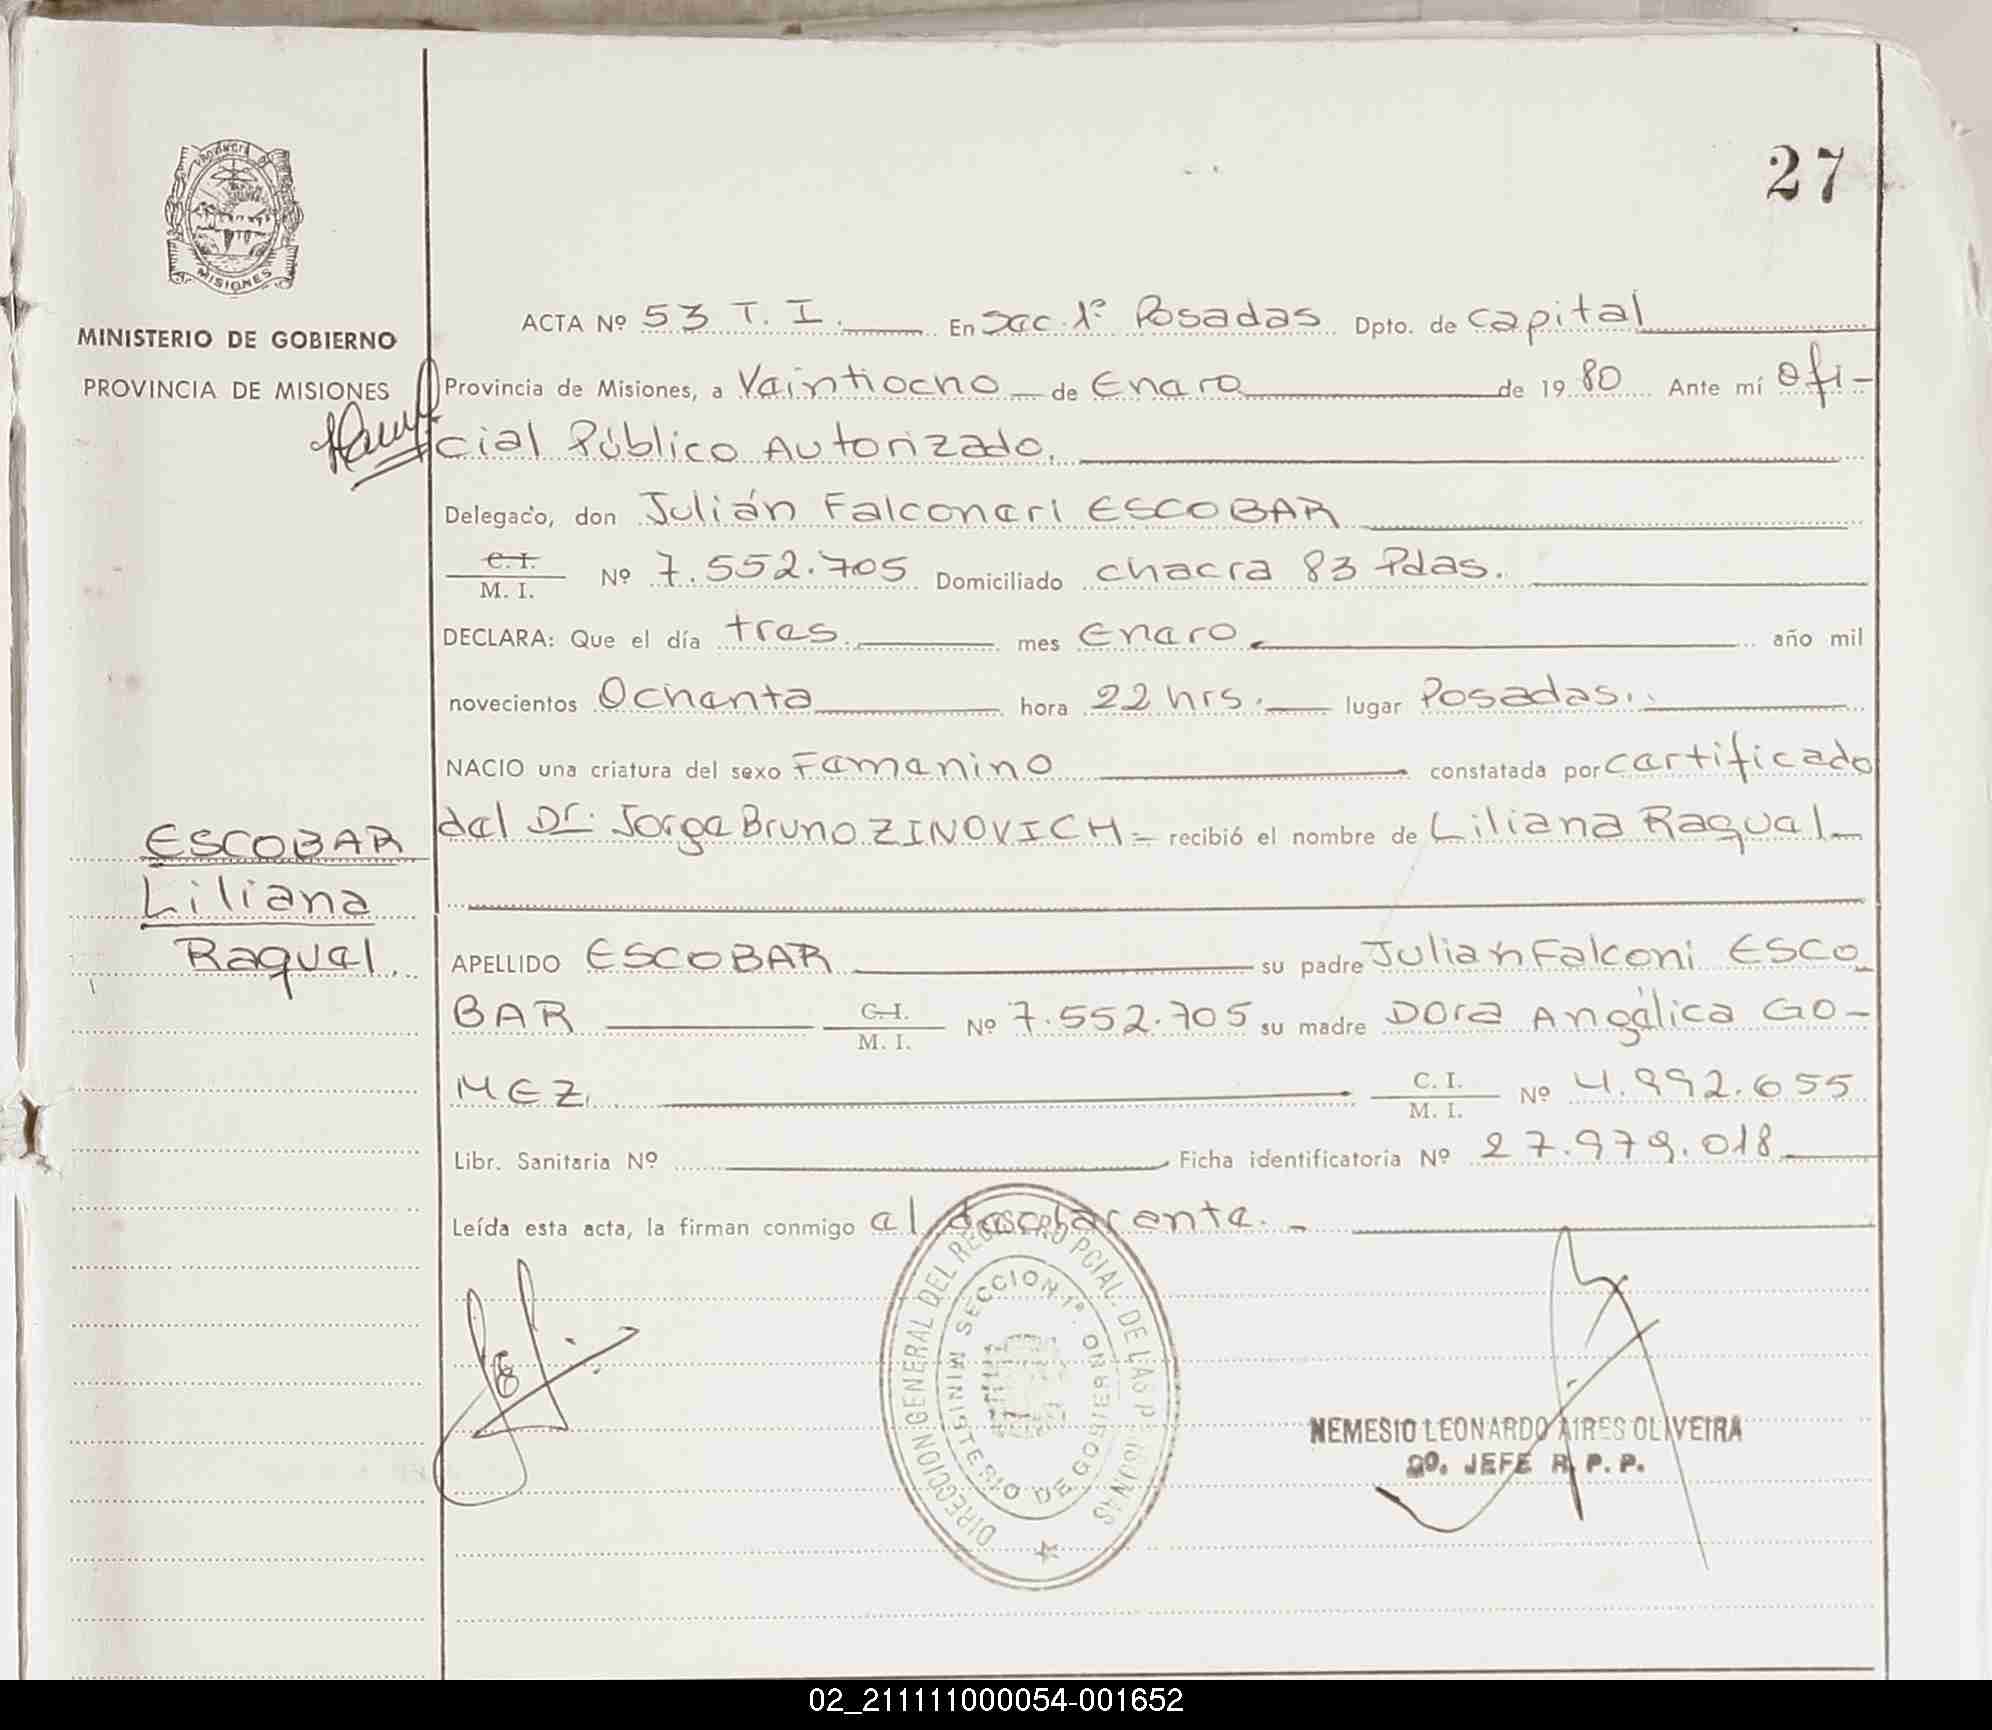 27
PROVINCIA DE
MISIONES
MINISTERIO DE GOBIERNO
PROVINCIA DE MISIONES
ACTA Nº 53 T. I. En Sec. 1ª Posadas Dpto. de Capital
Provincia de Misiones, a Veintiocho de Enero de 1980 Ante mí Ofi-
cial Público Autorizado.
Delegado, don Julián Falconeri ESCOBAR
C. I.
M. I. Nº 7.552.705 Domiciliado chacra 83 Pdas.
DECLARA: Que el día tres mes Enero. año mil
novecientos Ochenta hora 22 hrs. lugar Posadas.
NACIO una criatura del sexo Femenino constatada por certificado
del Dr. Jorge Bruno ZINOVICH = recibió el nombre de Liliana Raquel
ESCOBAR
Liliana
Raquel
APELLIDO ESCOBAR su padre Julian Falconi ESCO
BAR C. I.
M. I. Nº 7.552.705 su madre Dora Angélica GO-
MEZ. C. I.
M. I. Nº 4.992.655
Libr. Sanitaria Nº Ficha identificatoria Nº 27.979.018
Leída esta acta, la firman conmigo el
DIRECCION GENERAL DEL REGISTRO PCIAL. DE LAS PERSONAS
SECCION 1ª
MINISTERIO DE GOBIERNO
NEMESIO LEONARDO AIRES OLIVEIRA
JEFE R. P. P.
02_211111000054-001652